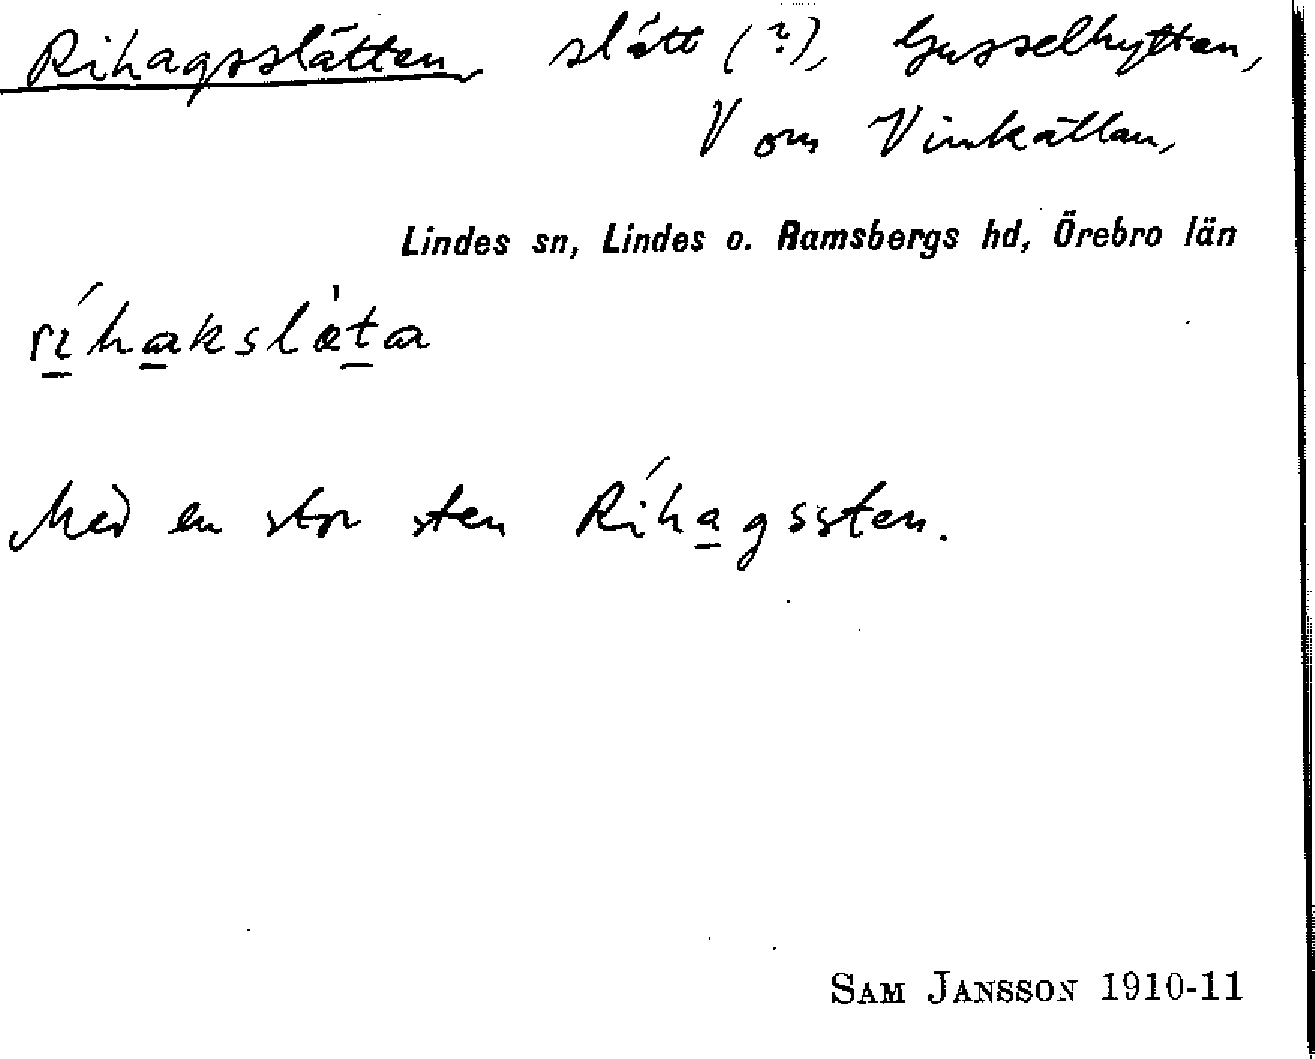 Rihagsslätten slått (?), Gusselhyttan,
V om Vinkällan,
Lindes sn, Lindes o. Ramsbergs hd, Örebro län
ríhakslæ̀ta
Med en stor sten Ríhagssten.
SAM JANSSON 1910-11